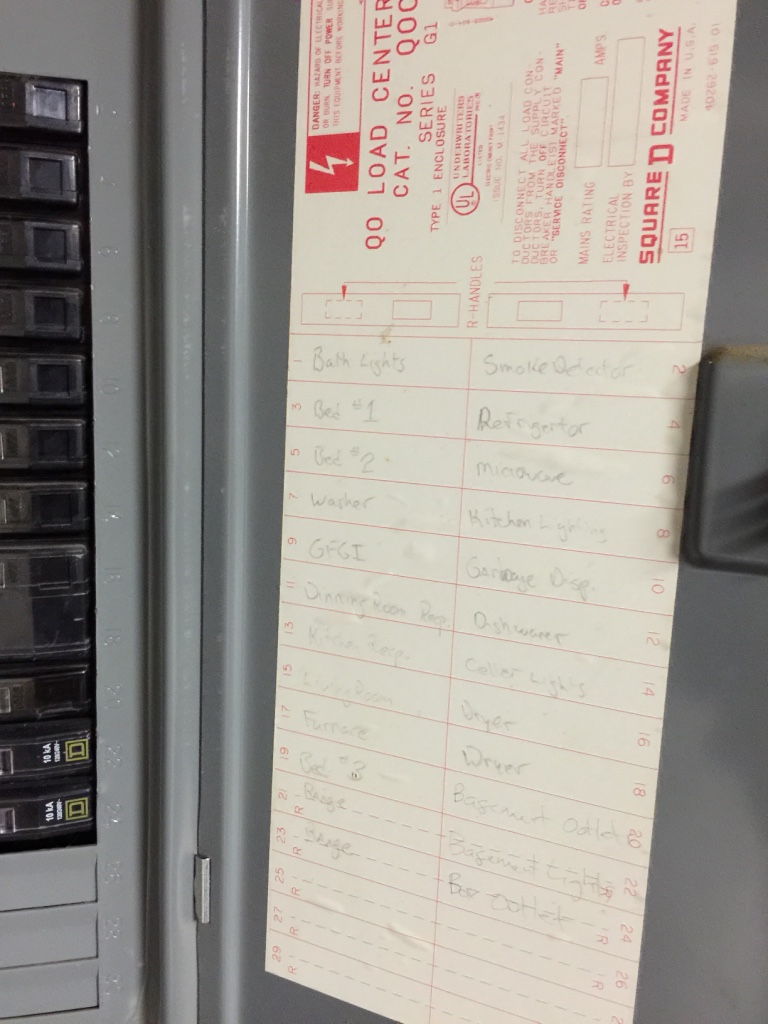 DANGER: HAZARD OF ELECTRICAL
OR BURN. TURN OFF POWER
THIS EQUIPMENT BEFORE WORKING
QO LOAD CENTER
CAT. NO. QOC
SERIES G1
TYPE 1 ENCLOSURE
UL
UNDERWRITERS
LABORATORIES
ISSUE NO. M-3434
TO DISCONNECT ALL LOAD CON-
DUCTORS FROM THE SUPPLY CON-
DUCTORS, TURN OFF CIRCUIT
BREAKER HANDLE(S) MARKED "MAIN"
OR "SERVICE DISCONNECT"
MAINS RATING AMPS.
ELECTRICAL
INSPECTION BY
SQUARE D COMPANY
15
MADE IN U.S.A.
40262-615-01
R-HANDLES
1 Bath Lights Smoke Detector 2
3 Bed #1 Refrigertor 4
5 Bed #2 microwave 6
7 Washer Kitchen Lighting 8
9 GFGI Garbage Disp. 10
11 Dinning Room Recp. Dishwaser 12
13 Kitchen Recp. Celler Lights 14
15 Living Room Dryer 16
17 Furnace Dryer 18
19 Bed #3 Basement Outlet 20
21 R Range Basement Lights 22
23 R Range Outlet R 24
25 R R 26
27 R
29 R
10 kA
D
10 kA
D